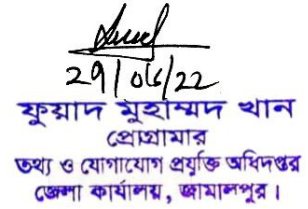 29/06/22
ফুয়াদ মুহাম্মদ খান
প্রোগ্রামার
তথ্য ও যোগাযোগ প্রযুক্তি অধিদপ্তর
জেলা কার্যালয়, জামালপুর।